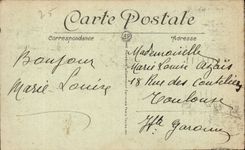 Carte Postale
Correspondance
Adresse
Bonjour
Marie Louise
Mademoiselle
Marie Louise
18 Rue des
Toulouse
Hte Garonne